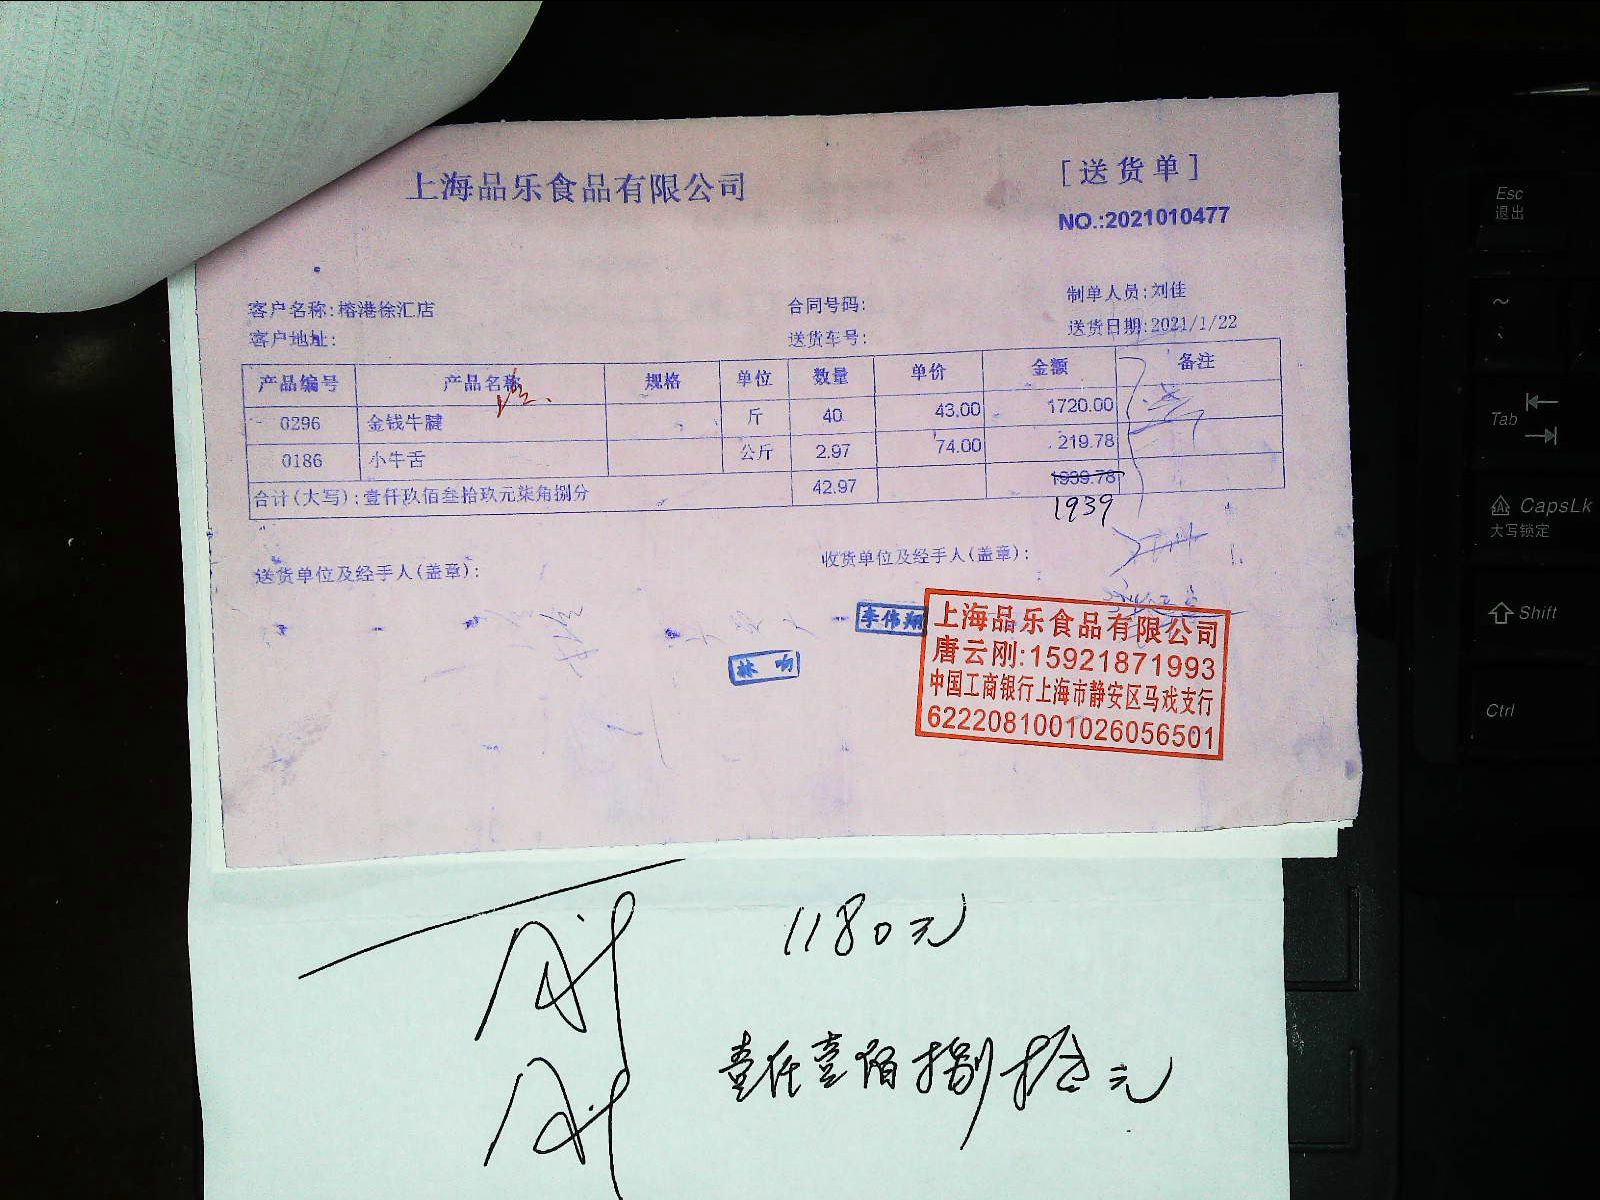 上海品乐食品有限公司
[送货单]
NO.:2021010477
客户名称:榕港徐汇店 合同号码: 制单人员:刘佳
客户地址: 送货车号: 送货日期:2021/1/22
产品编号 产品名称 规格 单位 数量 单价 金额 备注
0296 金钱牛腱 斤 40 43.00 1720.00
0186 小牛舌 公斤 2.97 74.00 219.78
合计(大写):壹仟玖佰叁拾玖元柒角捌分 42.97 1939.78
1939
送货单位及经手人(盖章): 收货单位及经手人(盖章):
李伟翔
林吻
上海品乐食品有限公司
唐云刚:15921871993
中国工商银行上海市静安区马戏支行
6222081001026056501
1180元
壹仟壹佰捌拾元
Esc
退出
~
Tab
CapsLk
大写锁定
Shift
Ctrl